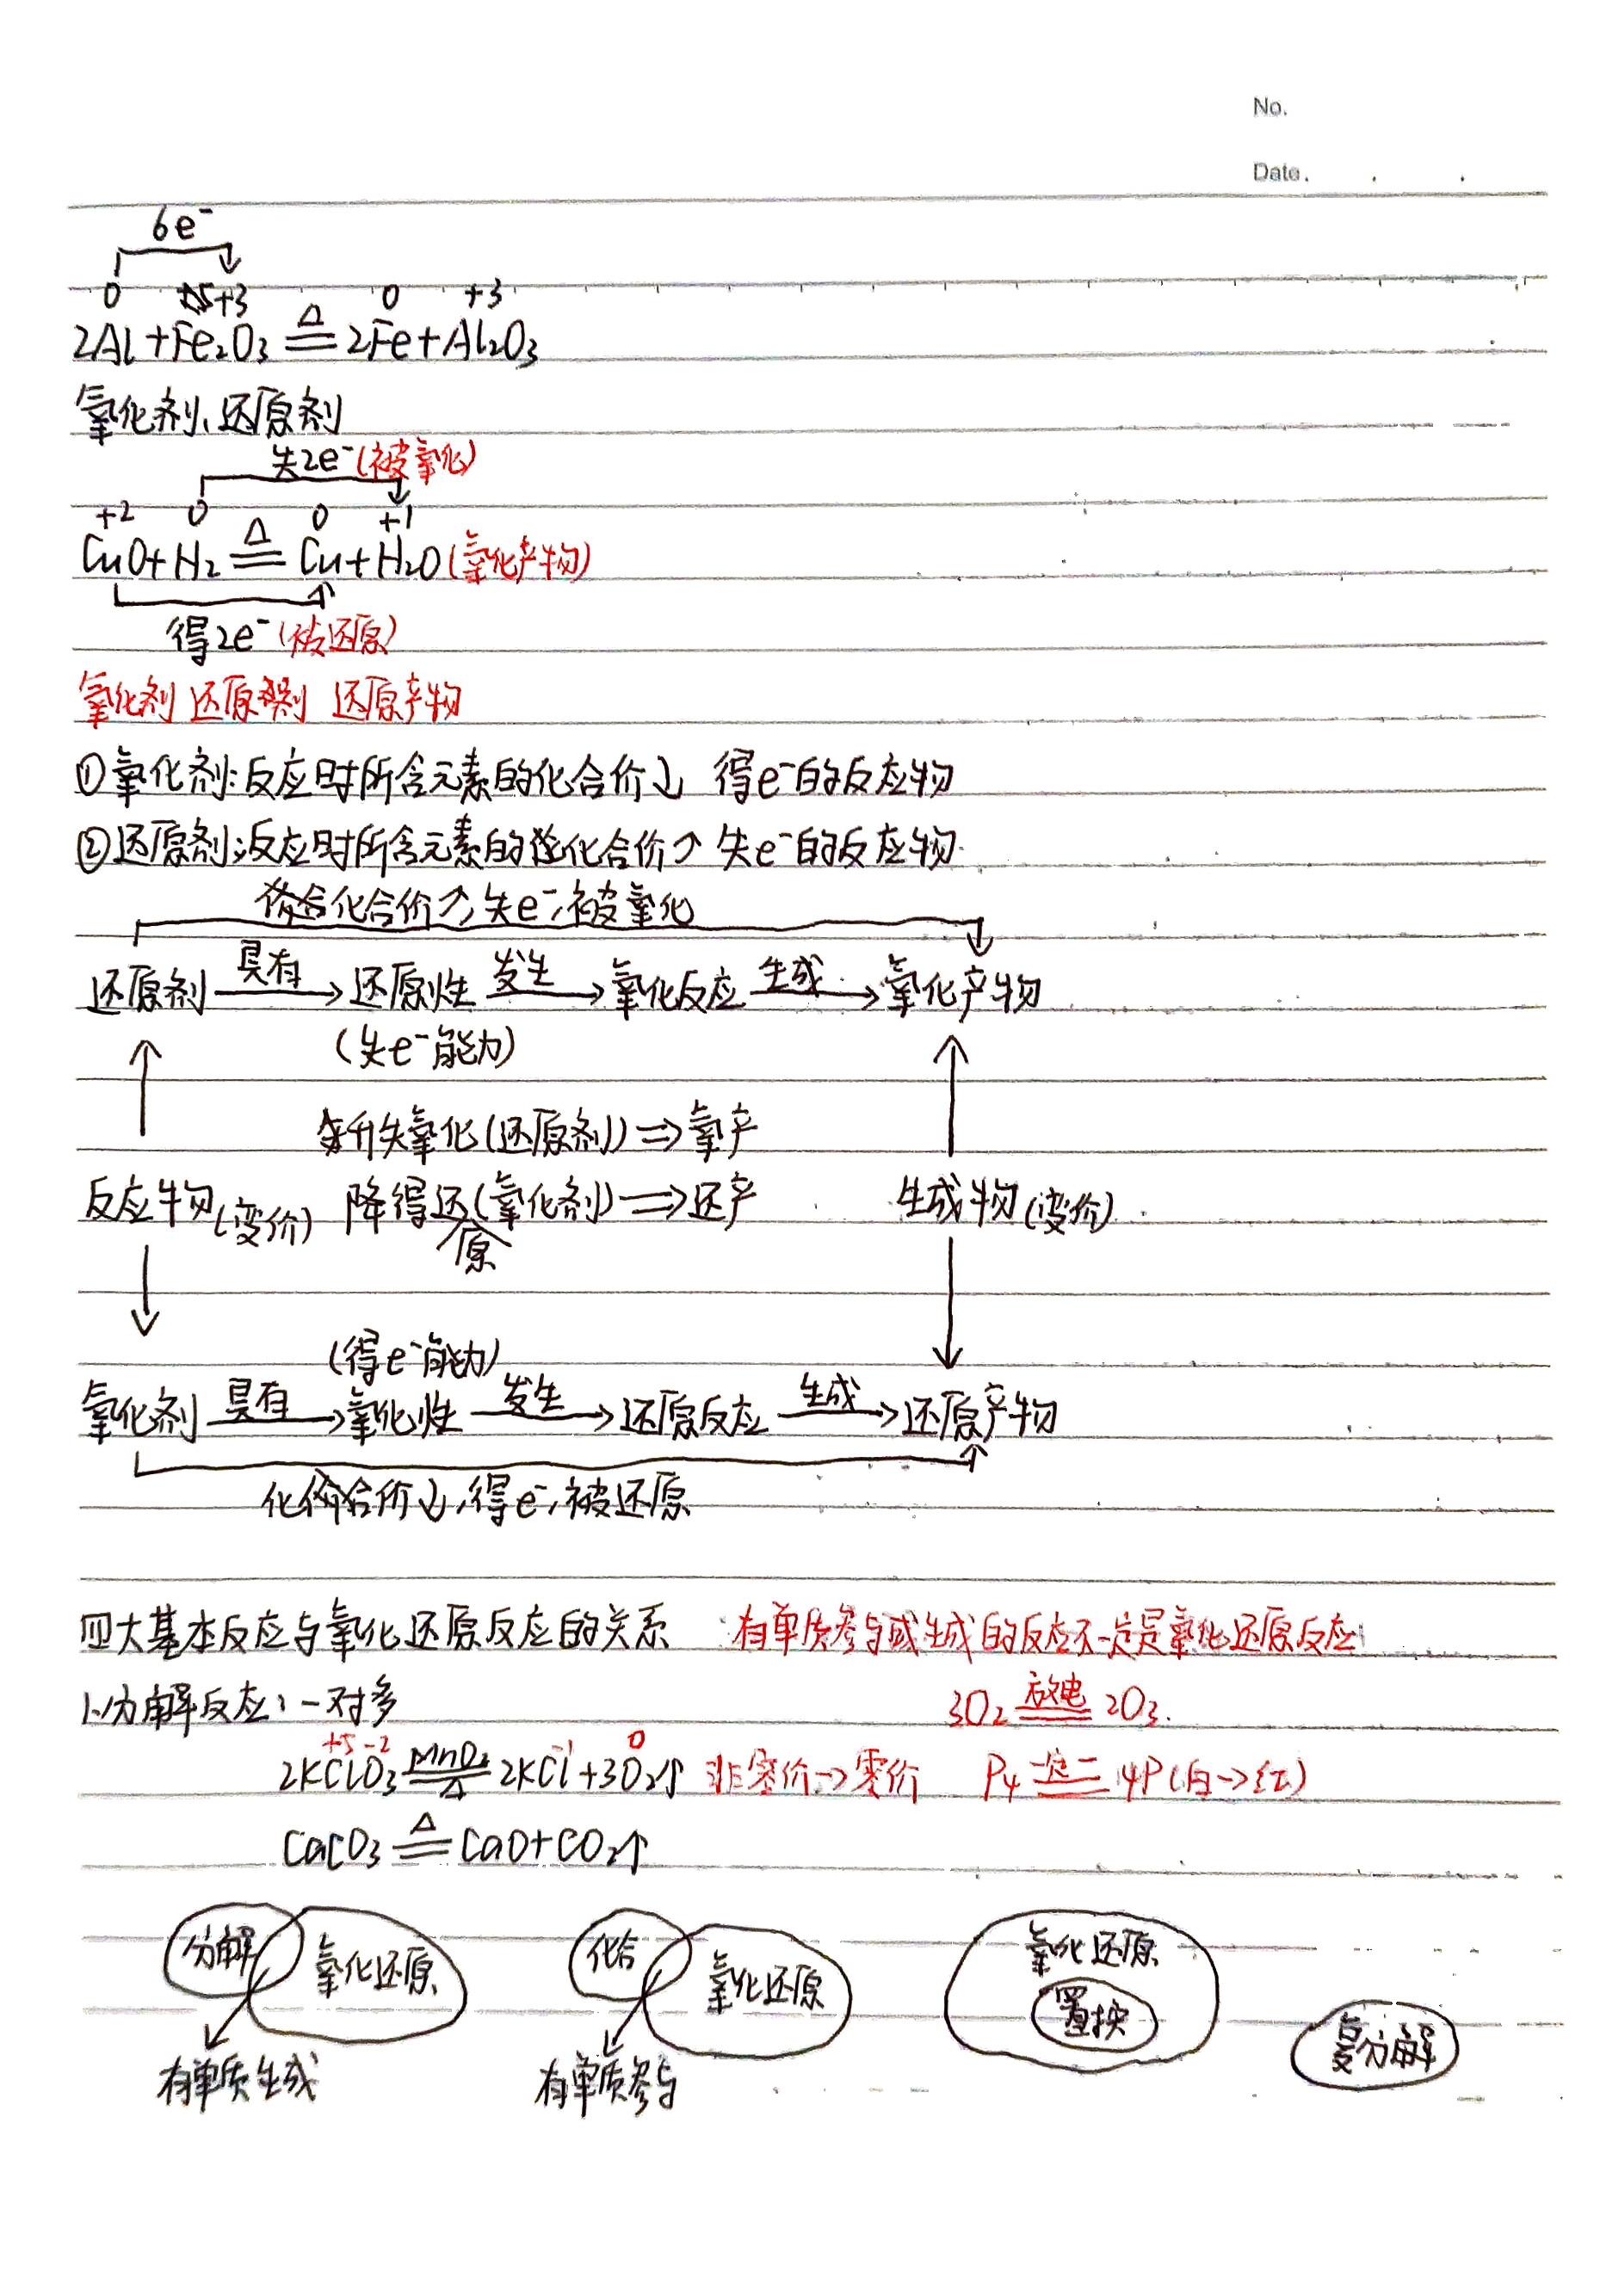 No.
Date.
6e⁻
0 +3 0 +3
2Al+Fe₂O₃ ≜ 2Fe+Al₂O₃
氧化剂、还原剂
失2e⁻(被氧化)
+2 0 0 +1
CuO+H₂ ≜ Cu+H₂O(氧化产物)
得2e⁻(被还原)
氧化剂 还原剂 还原产物
①氧化剂:反应时所含元素的化合价↓ 得e⁻的反应物
②还原剂:反应时所含元素的化合价↑ 失e⁻的反应物
化合价↑,失e⁻,被氧化
还原剂 具有→ 还原性 发生→ 氧化反应 生成→ 氧化产物
(失e⁻能力)
升失氧化(还原剂)⇒氧产
反应物(变价) 降得还原(氧化剂)⇒还产 生成物(变价)
(得e⁻能力)
氧化剂 具有→ 氧化性 发生→ 还原反应 生成→ 还原产物
化合价↓,得e⁻,被还原
四大基本反应与氧化还原反应的关系 有单质参与或生成的反应不一定是氧化还原反应
1.分解反应:一对多 3O₂ 放电 2O₃.
+5 -2 -1 0
2KClO₃ MnO₂ △ 2KCl+3O₂↑ 非零价→零价 P₄ 一定 4P(白→红)
CaCO₃ ≜ CaO+CO₂↑
分解 氧化还原 化合 氧化还原 氧化还原
置换
复分解
有单质生成 有单质参与